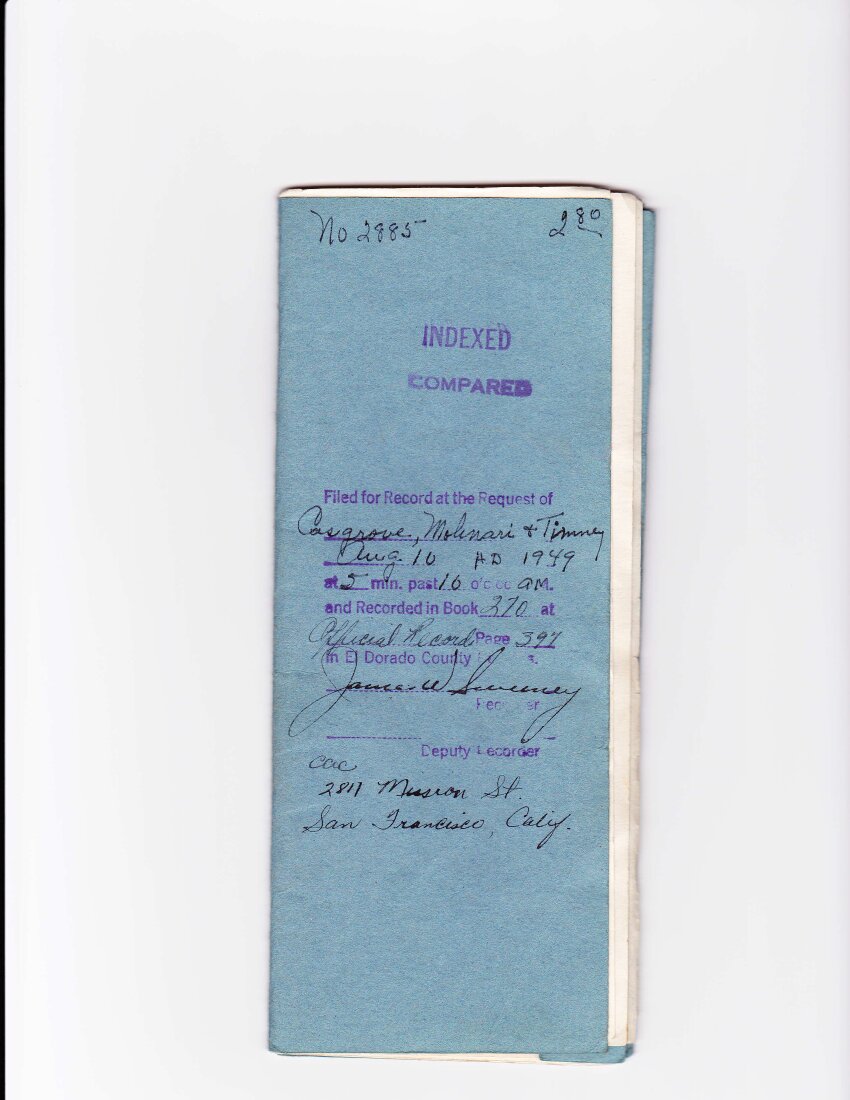 No 2885 2 80
INDEXED
COMPARED
Filed for Record at the Request of
Cosgrove, Molinari & Tinney
Aug. 10 AD 1949
at 5 min. past 10 o'c AM.
and Recorded in Book 270 at
Official Record Page 397
in El Dorado County
James W Sweeney
Deputy Recorder
cac
2811 Mission St.
San Francisco, Calif.